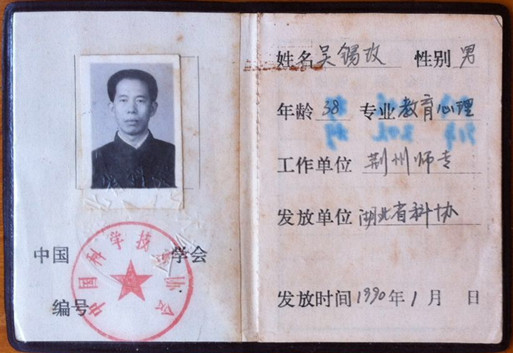 中国 学会
编号
姓名 吴锡改 性别 男
年龄 38 专业 教育心理
工作单位 荆州师专
发放单位 湖北省科协
发放时间 1990年1月 日